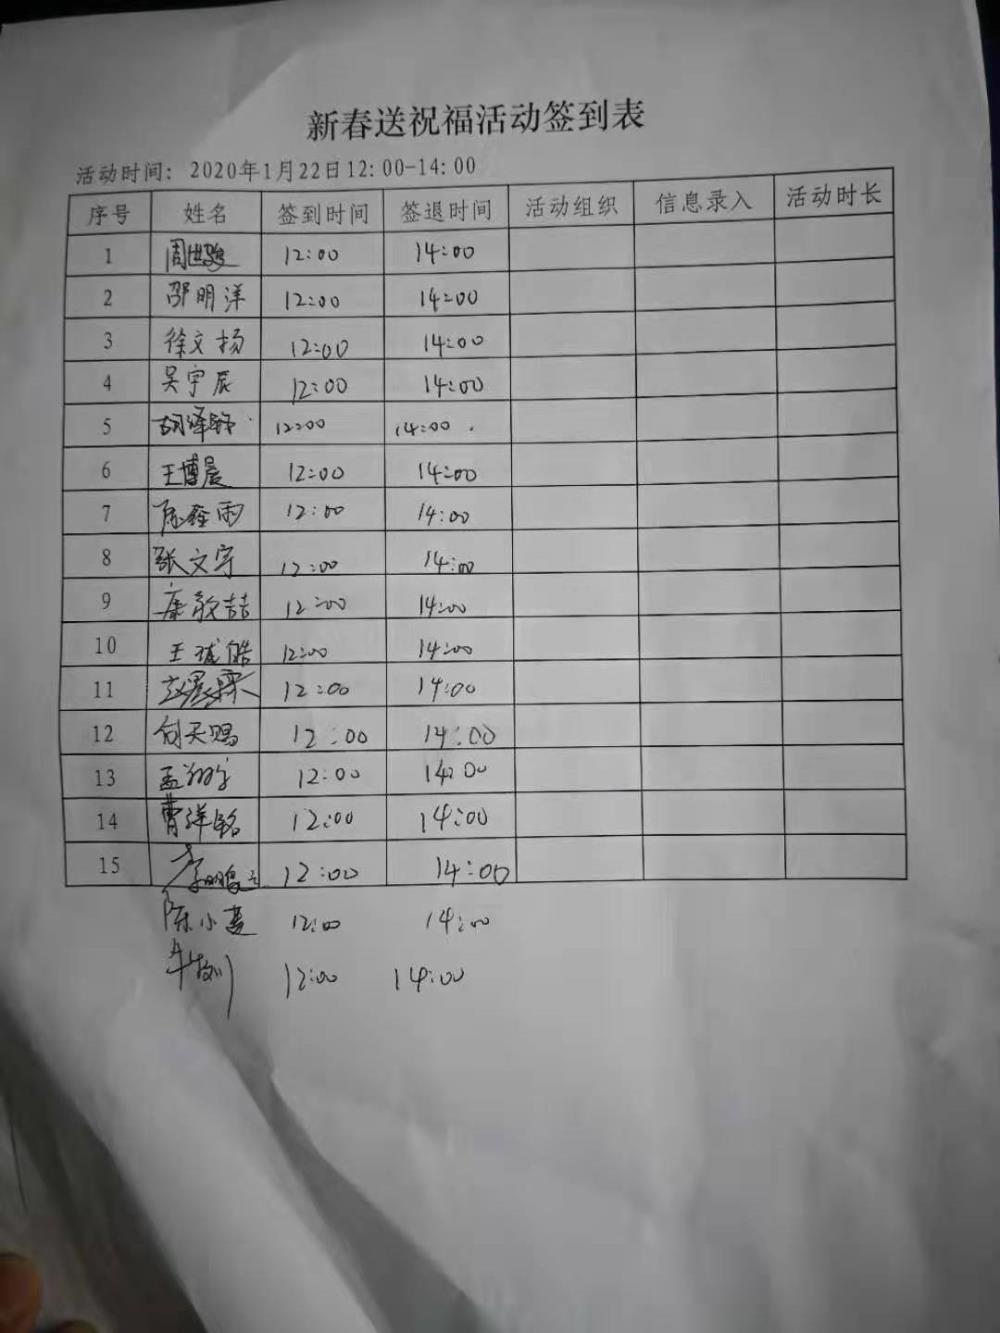 新春送祝福活动签到表
活动时间: 2020年1月22日12:00-14:00
序号 姓名 签到时间 签退时间 活动组织 信息录入 活动时长
1 周世骏 12:00 14:00
2 邵明洋 12:00 14:00
3 徐文杨 12:00 14:00
4 吴宇辰 12:00 14:00
5 胡泽 12:00 14:00
6 王博晨 12:00 14:00
7 雨 12:00 14:00
8 张文宇 12:00 14:00
9 康喆 12:00 14:00
10 王皓 12:00 14:00
11 12:00 14:00
12 天赐 12:00 14:00
13 孟翔宇 12:00 14:00
14 曹洋铭 12:00 14:00
15 李鹏 12:00 14:00
陈小 12:00 14:00
牛 12:00 14:00